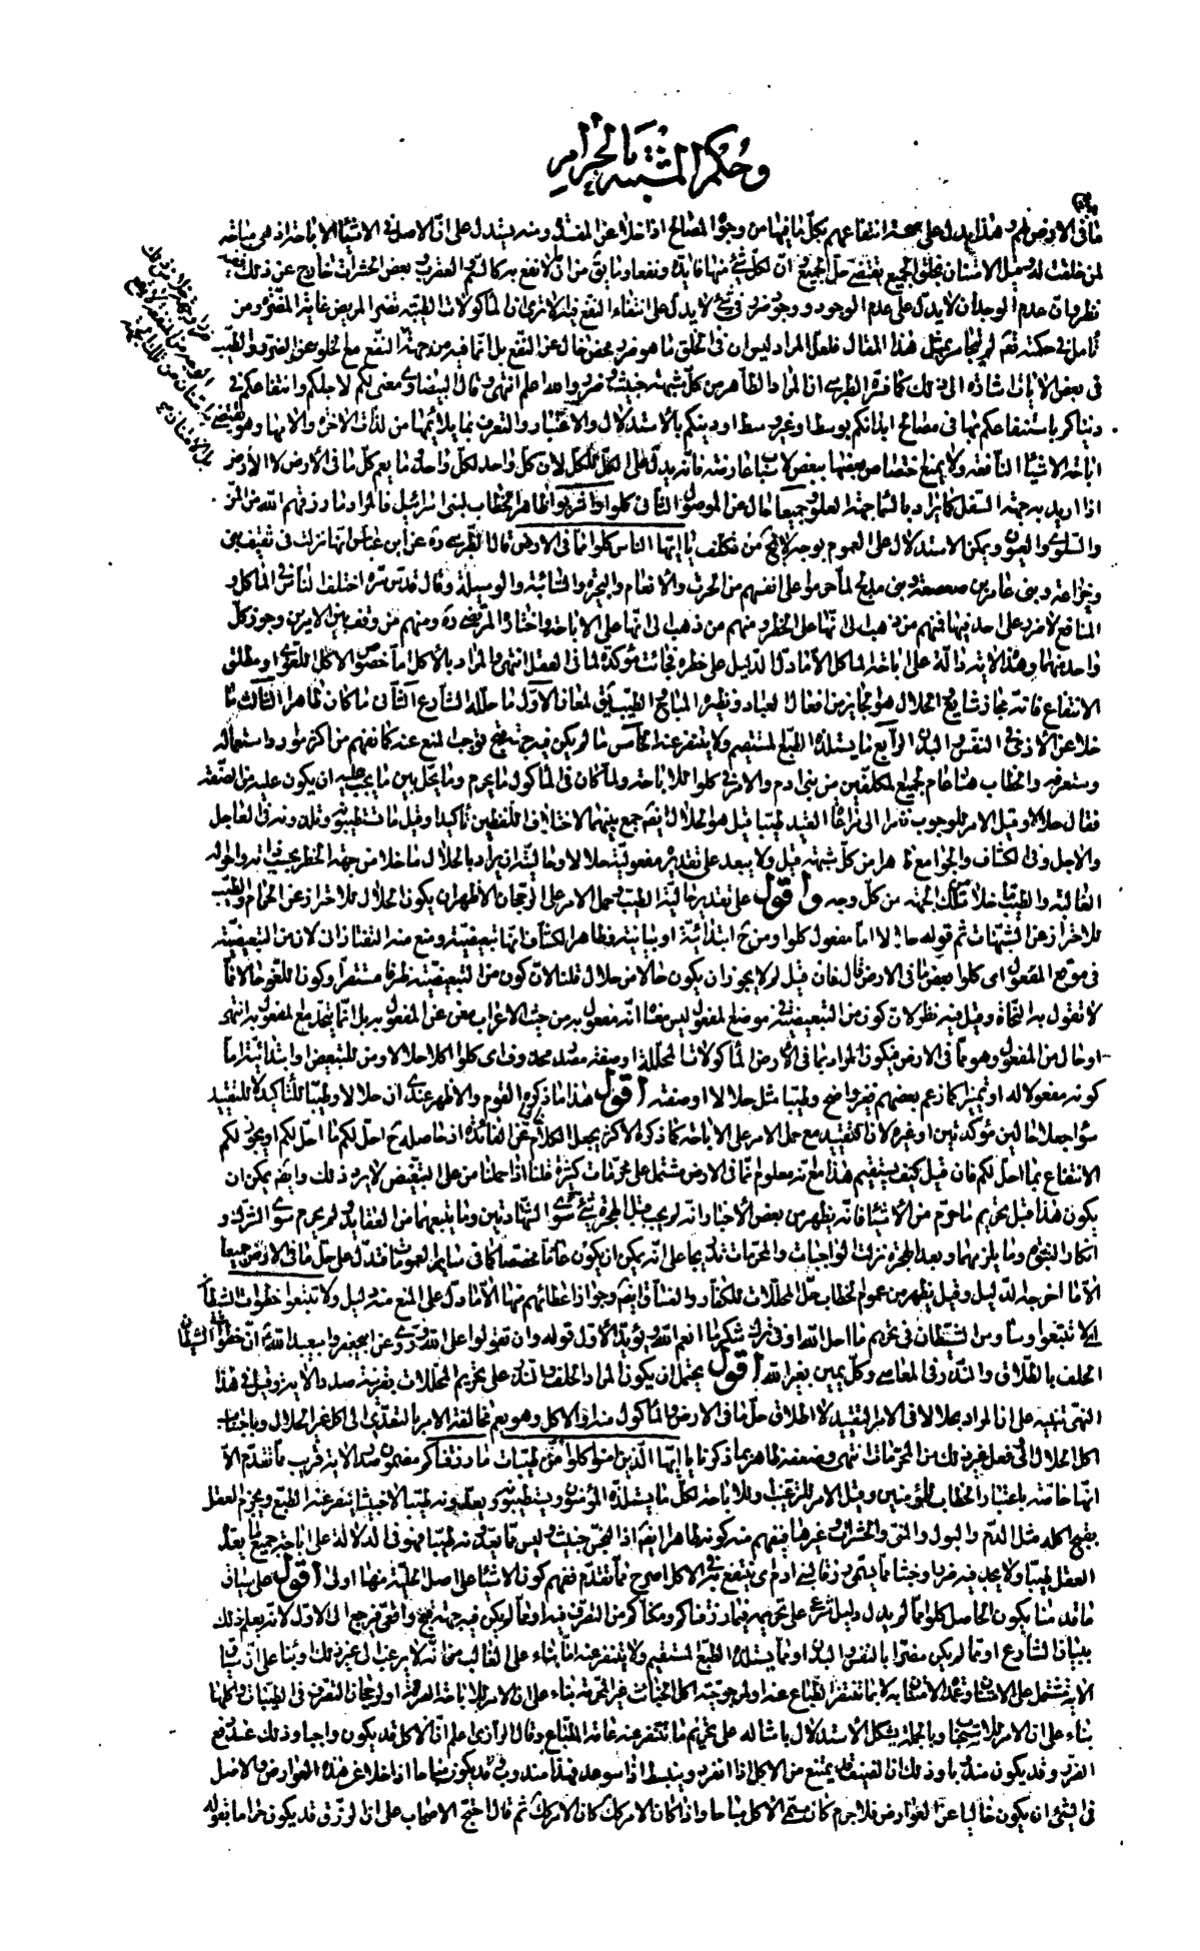 وحكم المشتبه بالحرام
ما في الارض لهم وهذا يدل على صحة انتفاعهم بكل ما فيها من وجوه المصالح اذا خلا عن المفسدة ومنه يستدل على ان الاصل في الاشياء الاباحة اذ هي مباحة
لمن خلقت له وقيل الامتنان بخلق الجميع يقتضي حل الجميع ان لكل شئ منها فايدة ونفعا وما يق من ان لا نفع به كالسم والعقرب وبعض الحشرات خارج عن ذلك ففيه
نظر فان عدم الوجدان لا يدل على عدم الوجود ووجود ضرر في شئ لا يدل على انتفاء النفع فيه الا ترى ان المأكولات الطيبة تضر المريض غاية المضرة ومن
تأمل في حكمته تعم لم يتجاسر بمثل هذا المقال فلعل المراد ليس ان في الخلق ما هو ضرر محض خال عن النفع بل انما فيه من جهة النفع مع الخلو عن الضرر والطيب
في بعض الايات اشاره الى ذلك كما فسره الطبرسي اذ المراد الطاهر من كل شبهة خبث وضرر والله اعلم انتهى وقال البيضاوي معنى لكم لاجلكم وانتفاعكم في
دنياكم باستنفاعكم بها في مصالح ابدانكم بوسط او غير وسط او دينكم بالاستدلال والاعتبار والتعرف بما يلائمها من لذات الاخرة والامها وهو يقتضي
اباحة الاشياء النافعة ولا يمنع اختصاص بعضها ببعض لاسباب عارضة فانه يدل على ان الكل للكل لا ان كل واحد لكل واحد وما يعم كل ما في الارض لا الارض
اذا اريد به جهة السفل كما يراد بالسماء جهة العلو وجميعا حال عن الموصول الثاني كلوا واشربوا ظاهره الخطاب لبني اسرائيل فالمراد ما رزقهم الله من المن
والسلوى والعيون ويمكن الاستدلال على العموم بوجه لا يخ من تكلف يا ايها الناس كلوا مما في الارض قال الطبرسي ره عن ابن عباس انها نزلت في ثقيف وبني
وخزاعة وبني عامر بن صعصعة وبني مدلج لما حرموا على انفسهم من الحرث والانعام والبحيرة والسائبة والوسيلة وقال قدس سره اختلف الناس في المأكل و
المنافع لا ضرر على احد فيها فمنهم من ذهب الى انها على الحظر ومنهم من ذهب الى انها على الاباحة واختاره المرتضى ره ومنهم من وقف بين الامرين وجوز كل
واحد منهما وهذه الاية دالة على اباحة المأكل الا ما دل الدليل على حظره فجاءت مؤكدة لما في العقل انتهى والمراد بالاكل اما خصوص الاكل اللغوي او مطلق
الانتفاع فانه مجاز شايع الحلال هو الجايز من افعال العباد ونظيره المباح والطيب يق لمعان الاول ما حلله الشارع الثاني ما كان طاهرا الثالث ما
خلا عن الاذى في النفس والبدن الرابع ما يستلذه الطبع المستقيم ولا يتنفر عنه الخامس ما لم يكن فيه جهة قبح توجب المنع عنه كما يفهم من اكثر موارد استعماله
وستعرفه والخطاب هنا عام لجميع المكلفين من بني ادم والامر في كلوا للاباحة ولما كان في المأكول ما يحرم وما يحل بين ما يجب عليه ان يكون عليه من الصفة
فقال حلالا وقيل الامر للوجوب نظرا الى مراعاة القيد طيبا قيل هو الحلال ايضه جمع بينهما لاختلاف اللفظين تأكيدا وقيل ما تستطيبونه وتلذونه في العاجل
والاجل وفي الكشاف والجوامع طاهرا من كل شبهة قيل ولا يبعد على تقدير مفعولية حلالا وحالية ان يراد بالحلال ما خلا من جهة الحظر بحسب ذاته واحواله
الغالبة والطيب ما خلا عن تلك الجهة من كل وجه واقول على تقدير حالية الطيب حمل الامر على الرجحان الاظهر ان يكون الحلال للاحتراز عن الحرام والطيب
للاحتراز عن الشبهات ثم قوله حلالا اما مفعول كلوا ومن ح ابتدائية او بيانية وظاهر الكشاف انها تبعيضية ومنع منه التفتازاني لان من التبعيضية
في موقع المفعول اي كلوا بعض ما في الارض قال فان قيل لم لا يجوز ان يكون حالا من حلال قلنا لان كون من التبعيضية ظرفا مستقرا وكون اللغو حالا مما
لا تقول به النحاة وقيل فيه نظر لان كون من التبعيضية في موضع المفعول ليس معناه انه مفعول به من حيث الاعراب مغن عن المفعول به بل انما يتحد مع المفعول به انتهى
او حال من المفعول وهو مما في الارض فيكون المراد بما في الارض المأكولات المحللة او صفة مصدر محذوف اي كلوا اكلا حلالا ومن للتبعيض او ابتدائية اما
كونه مفعولا له او تميزا كما زعم بعضهم فغير واضح وطيبا مثل حلالا او صفته اقول هذا ما ذكره القوم والاظهر عندي ان حلالا وطيبا للتأكيد لا للتقييد
سواء جعلا حالين مؤكدتين او غيره لان التقييد مع حمل الامر على الاباحة كما ذكره الاكثر يجعل الكلام خاليا عن الفائدة اذ حاصله ح احل لكم ما احل لكم او يجوز لكم
الانتفاع بما احل لكم فان قيل كيف يستقيم هذا مع انه معلوم ان ما في الارض مشتمل على محرمات كثيرة قلنا اذا حملنا من على التبعيض لا يرد ذلك وايضه يمكن ان
يكون هذا قبل تحريم ما حرم من الاشياء فانه يظهر من بعض الاخبار انه لم يجب قبل الهجرة شئ سوى الشهادتين وما يتبعهما من العقايد ولم يحرم سوى الشرك و
انكار النبوة وما يلزمهما وبعد الهجرة نزلت الواجبات والمحرمات تدريجا على انه يمكن ان يكون عاما مخصصا كما في ساير العمومات فتدل على حل ما في الارض جميعا
الا ما اخرجه الدليل وقيل يظهر من عموم الخطاب حل المحللات للكفار والفساق ايضه وجواز اعطائهم منها الا ما دل على المنع منه دليل ولا تتبعوا خطوات الشيطان
اي لا تتبعوا وساوس الشيطان في تحريم ما احل الله او في ترك شكر ما انعم الله ويؤيد الاول قوله وان تقولوا على الله وروي عن ابيجعفر وابيعبد الله ان من خطوات الشيطان
الحلف بالطلاق والنذور في المعاصي وكل يمين بغير الله اقول يحتمل ان يكون المراد الحلف والنذر على تحريم المحللات بقرينة صدر الاية وقيل في هذا
النهي تنبيه على ان المراد بحلالا في الامر التقييد لا اطلاق حل ما في الارض والمأكول منه او الاكل وهو يعم مخالفة الامر بالتعدي الى اكل غير الحلال وباجتناب
اكل الحلال الى فعل غير ذلك من المحرمات انتهى وضعفه ظاهر بما ذكرنا يا ايها الذين امنوا كلوا من طيبات ما رزقناكم مضمون هذه الاية قريب مما تقدم الا
انها خاصة باعتبار الخطاب للمؤمنين وقيل الامر للترغيب وللاباحة لكل ما يستلذه المؤمنون ويستطيبونه ويعدونه طيبا لا خبيثا ينفر عنه الطبع ويجزم العقل
بقبح اكله مثل الدم والبول والمني والحشرات وغيرها فيفهم منه كونه طاهرا ايضه اذ النجس خبيث وليس مما يعدونه طيبا فهو في الدلالة على اباحة جميع ما يعد
العقل طيبا ولا يجد فيه ضررا وخبثا مما يسمى رزقا لبني ادم اي ينتفع به في الاكل اصرح مما تقدم ففهم كون الاشياء على اصل حلية منها اولى اقول على سياق
ما قدمنا يكون الحاصل كلوا مما لم يدل دليل شرعي على تحريمه فيما رزقناكم ومكناكم من التصرف فيه او مما لم يكن فيه جهة قبح واقعي فيرجع الى الاول لانه يعلم ذلك
ببيان الشارع او مما لم يكن مضرا بالنفس والبدن او مما يستلذه الطبع المستقيم ولا يتنفر عنه اما بناء على الغالب من انه لا يرغب الى غير ذلك وبناء على ان سياق
الاية يشتمل على الامتنان وعمدة الامتنان به لا بما تتنفر الطباع عنه او لمرجوحية اكل الخبائث غير المحرمة بناء على ان الامر للاباحة الصرفة او لرجحان التصرف في الطيبات واكلها
بناء على ان الامر للاستحباب وبالجملة يشكل الاستدلال بامثاله على تحريم ما تتنفر عنه عامة الطباع وقال الرازي اعلم ان الاكل قد يكون واجبا وذلك عند دفع
الضرر وقد يكون مندوبا وذلك ان الضيف قد يمتنع من الاكل اذا انفرد وينبسط اذا سوعد فهذا مندوب وقد يكون مباحا اذا خلا عن هذه العوارض والاصل
في الشئ ان يكون خاليا عن العوارض فلا جرم كان مسمى الاكل مباحا واذا كان الامر كك كان الامر كك ثم قال احتج الاصحاب على ان الرزق قد يكون حراما بقوله